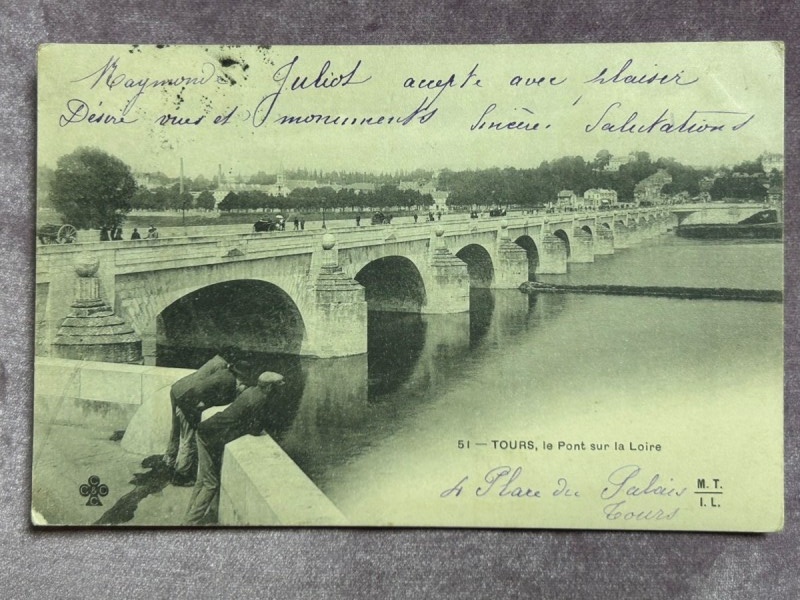 Raymond Juliot accepte avec plaisir
Désire vues et monuments Sincère. Salutations
51 — TOURS, le Pont sur la Loire
4 Place du Palais
Tours
M. T.
I. L.
C C C C